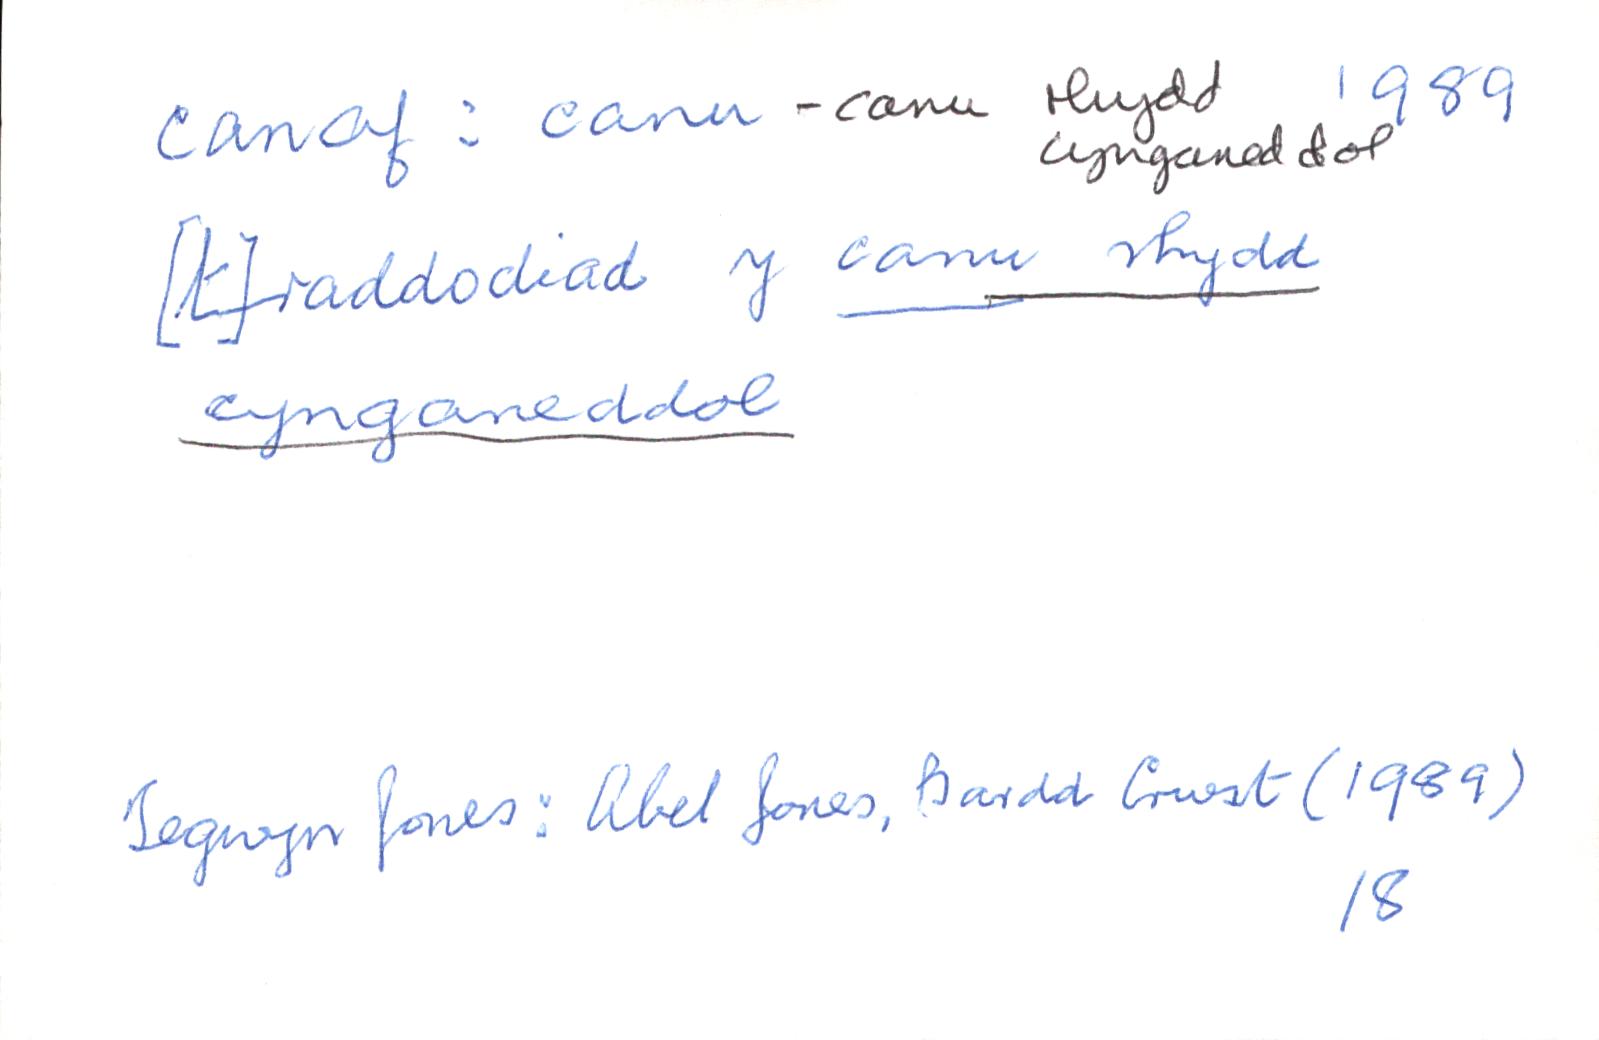 canaf : canu - canu rhydd 1989
cynganeddol
[t]raddodiad y canu rhydd
cynganeddol
Tegwyn Jones: Abel Jones, Bardd Crwst (1989)
18